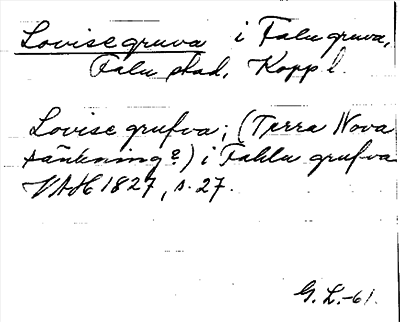 Lovisegruva i Falu gruva,
Falu stad, Kopp l.
Lovise grufva; (Terra Nova
sänkning?) i Fahlu grufva
VAH 1827, s. 27.
G. L. -61.